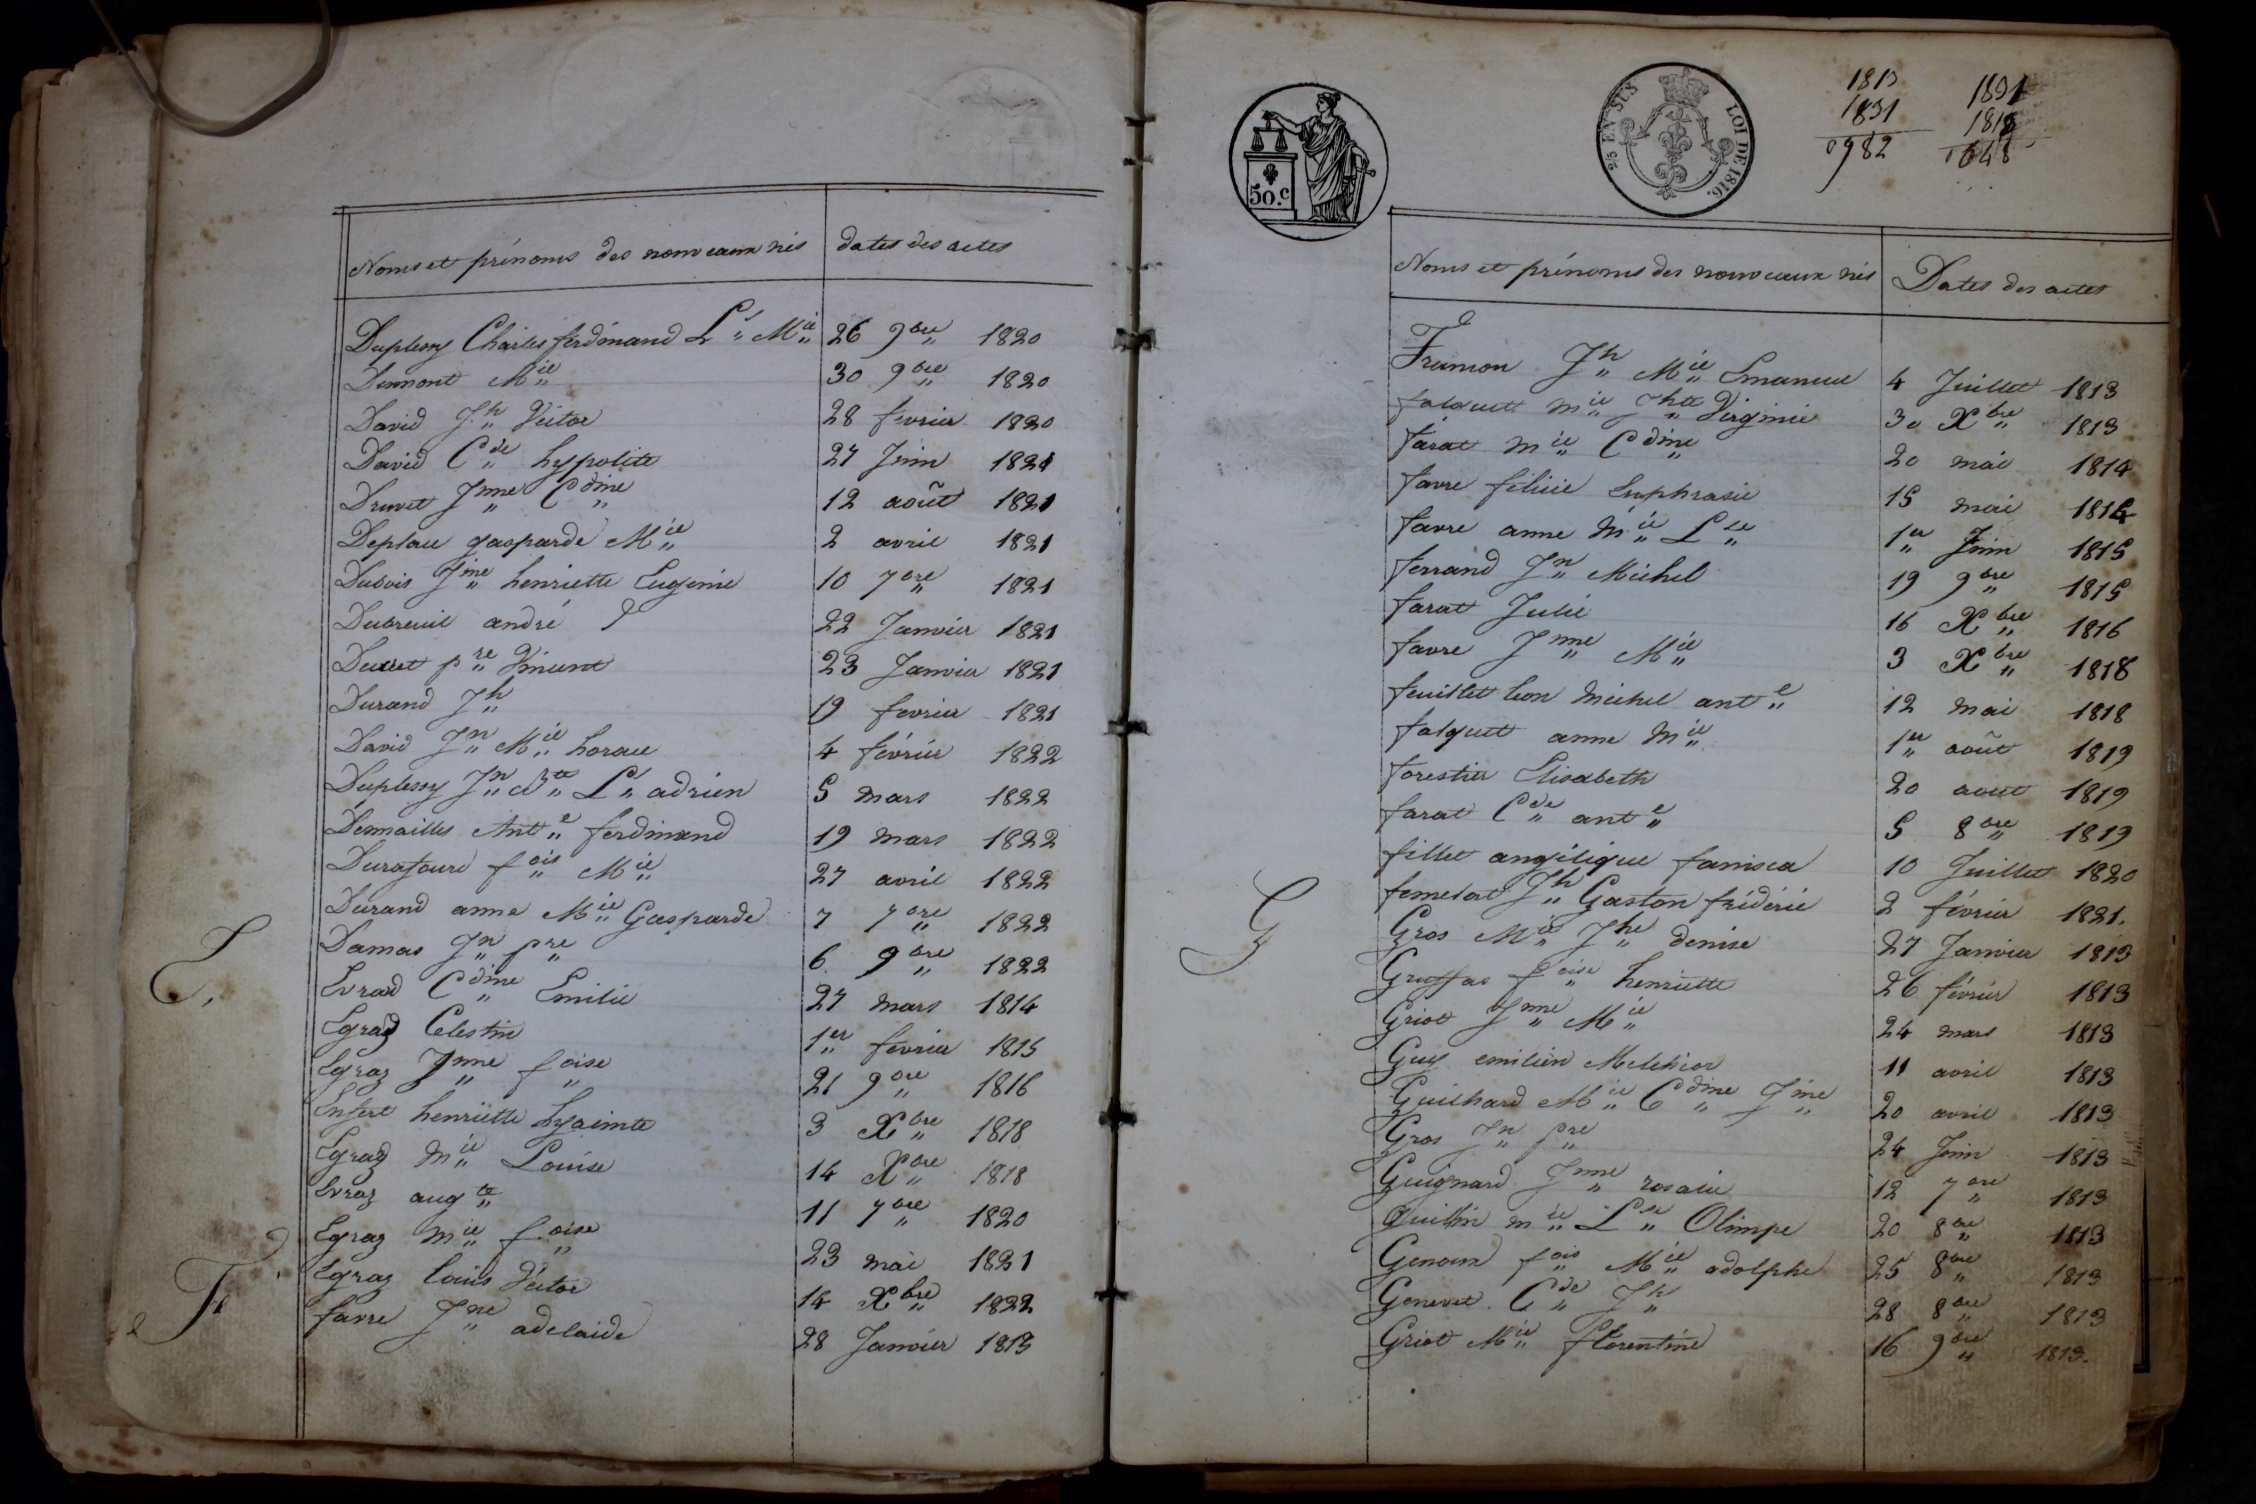 Noms et prénoms des nouveaux nés dates des actes
Duplessy Charles ferdinand Ls Mie 26 9bre 1820
Dumont Mie 30 9bre 1820
David Jh Victor 28 fevrier 1820
David Cde hypolitte 27 Juin 1821
Druvet Jnne Cdine 12 août 1821
Deplace gasparde Mie 2 avril 1821
Dubois Jine henriette Eugenie 10 7bre 1821
Dubreuil andré 22 Janvier 1821
Ducret pre Vincent 23 Janvier 1821
Durand Jh 19 fevrier 1821
David Jn Mie horace 4 février 1822
Duplessy Jn Bte Ls adrien 5 mars 1822
Desmailles Ante ferdinand 19 mars 1822
Durafourd fois Mie 27 avril 1822
Durand anne Mie Gasparde 7 7bre 1822
Damas Jn pre 6 9bre 1822
E,
Evrad Cdine Emilie 27 mars 1814
Egraz Celestin 1er fevrier 1815
Egraz Jnne foise 21 9bre 1816
Enfert henriette hyacinte 3 Xbre 1818
Egraz Mie Louise 14 Xbre 1818
Evraz augte 11 7bre 1820
Egraz Mie foise 23 mai 1821
Egraz louis Victor 14 Xbre 1822
F
favre Jne adelaide 28 Janvier 1813
50.c
25 EN SUS LOI DE 1816.
1813 1831
1831 1818
0982 1648
Noms et prénoms des nouveaux nés Dates des actes
Frumon Jh Mie Emanuel 4 Juillet 1813
falquet mie Jhtte Virginie 30 Xbre 1813
farat mie Cdine 20 mai 1814
favre felicie Euphrasie 15 mai 1814
favre anne Mie Lse 1er Juin 1815
ferrand Jn Michel 19 9bre 1815
farat Julie 16 Xbre 1816
favre Jnne Mie 3 Xbre 1818
feuillet leon michel ante 12 mai 1818
falquet anne Mie 1er août 1819
forestier Elisabeth 20 aout 1819
farat Cde ante 5 8bre 1819
fillet angélique fanisca 10 Juillet 1820
femelat Jh Gaston fridéric 2 février 1821.
G
Gros Mie Jhe denise 27 Janvier 1813
Gruffas foise henriette 26 février 1813
Griot Jnne Mie 24 mars 1813
Guy emilien Melchior 11 avril 1813
Guilhard Mie Cdine Jine 20 avril 1813
Gros Jn pre 24 Juin 1813
Guignard Jnne rosalie 12 7bre 1813
Guillin mie Lse Olimpe 20 8bre 1813
Genoux fois Mie adolphe 25 8bre 1813
Genevet Cde Jh 28 8bre 1813
Griot Mie florentine 16 9bre 1813.